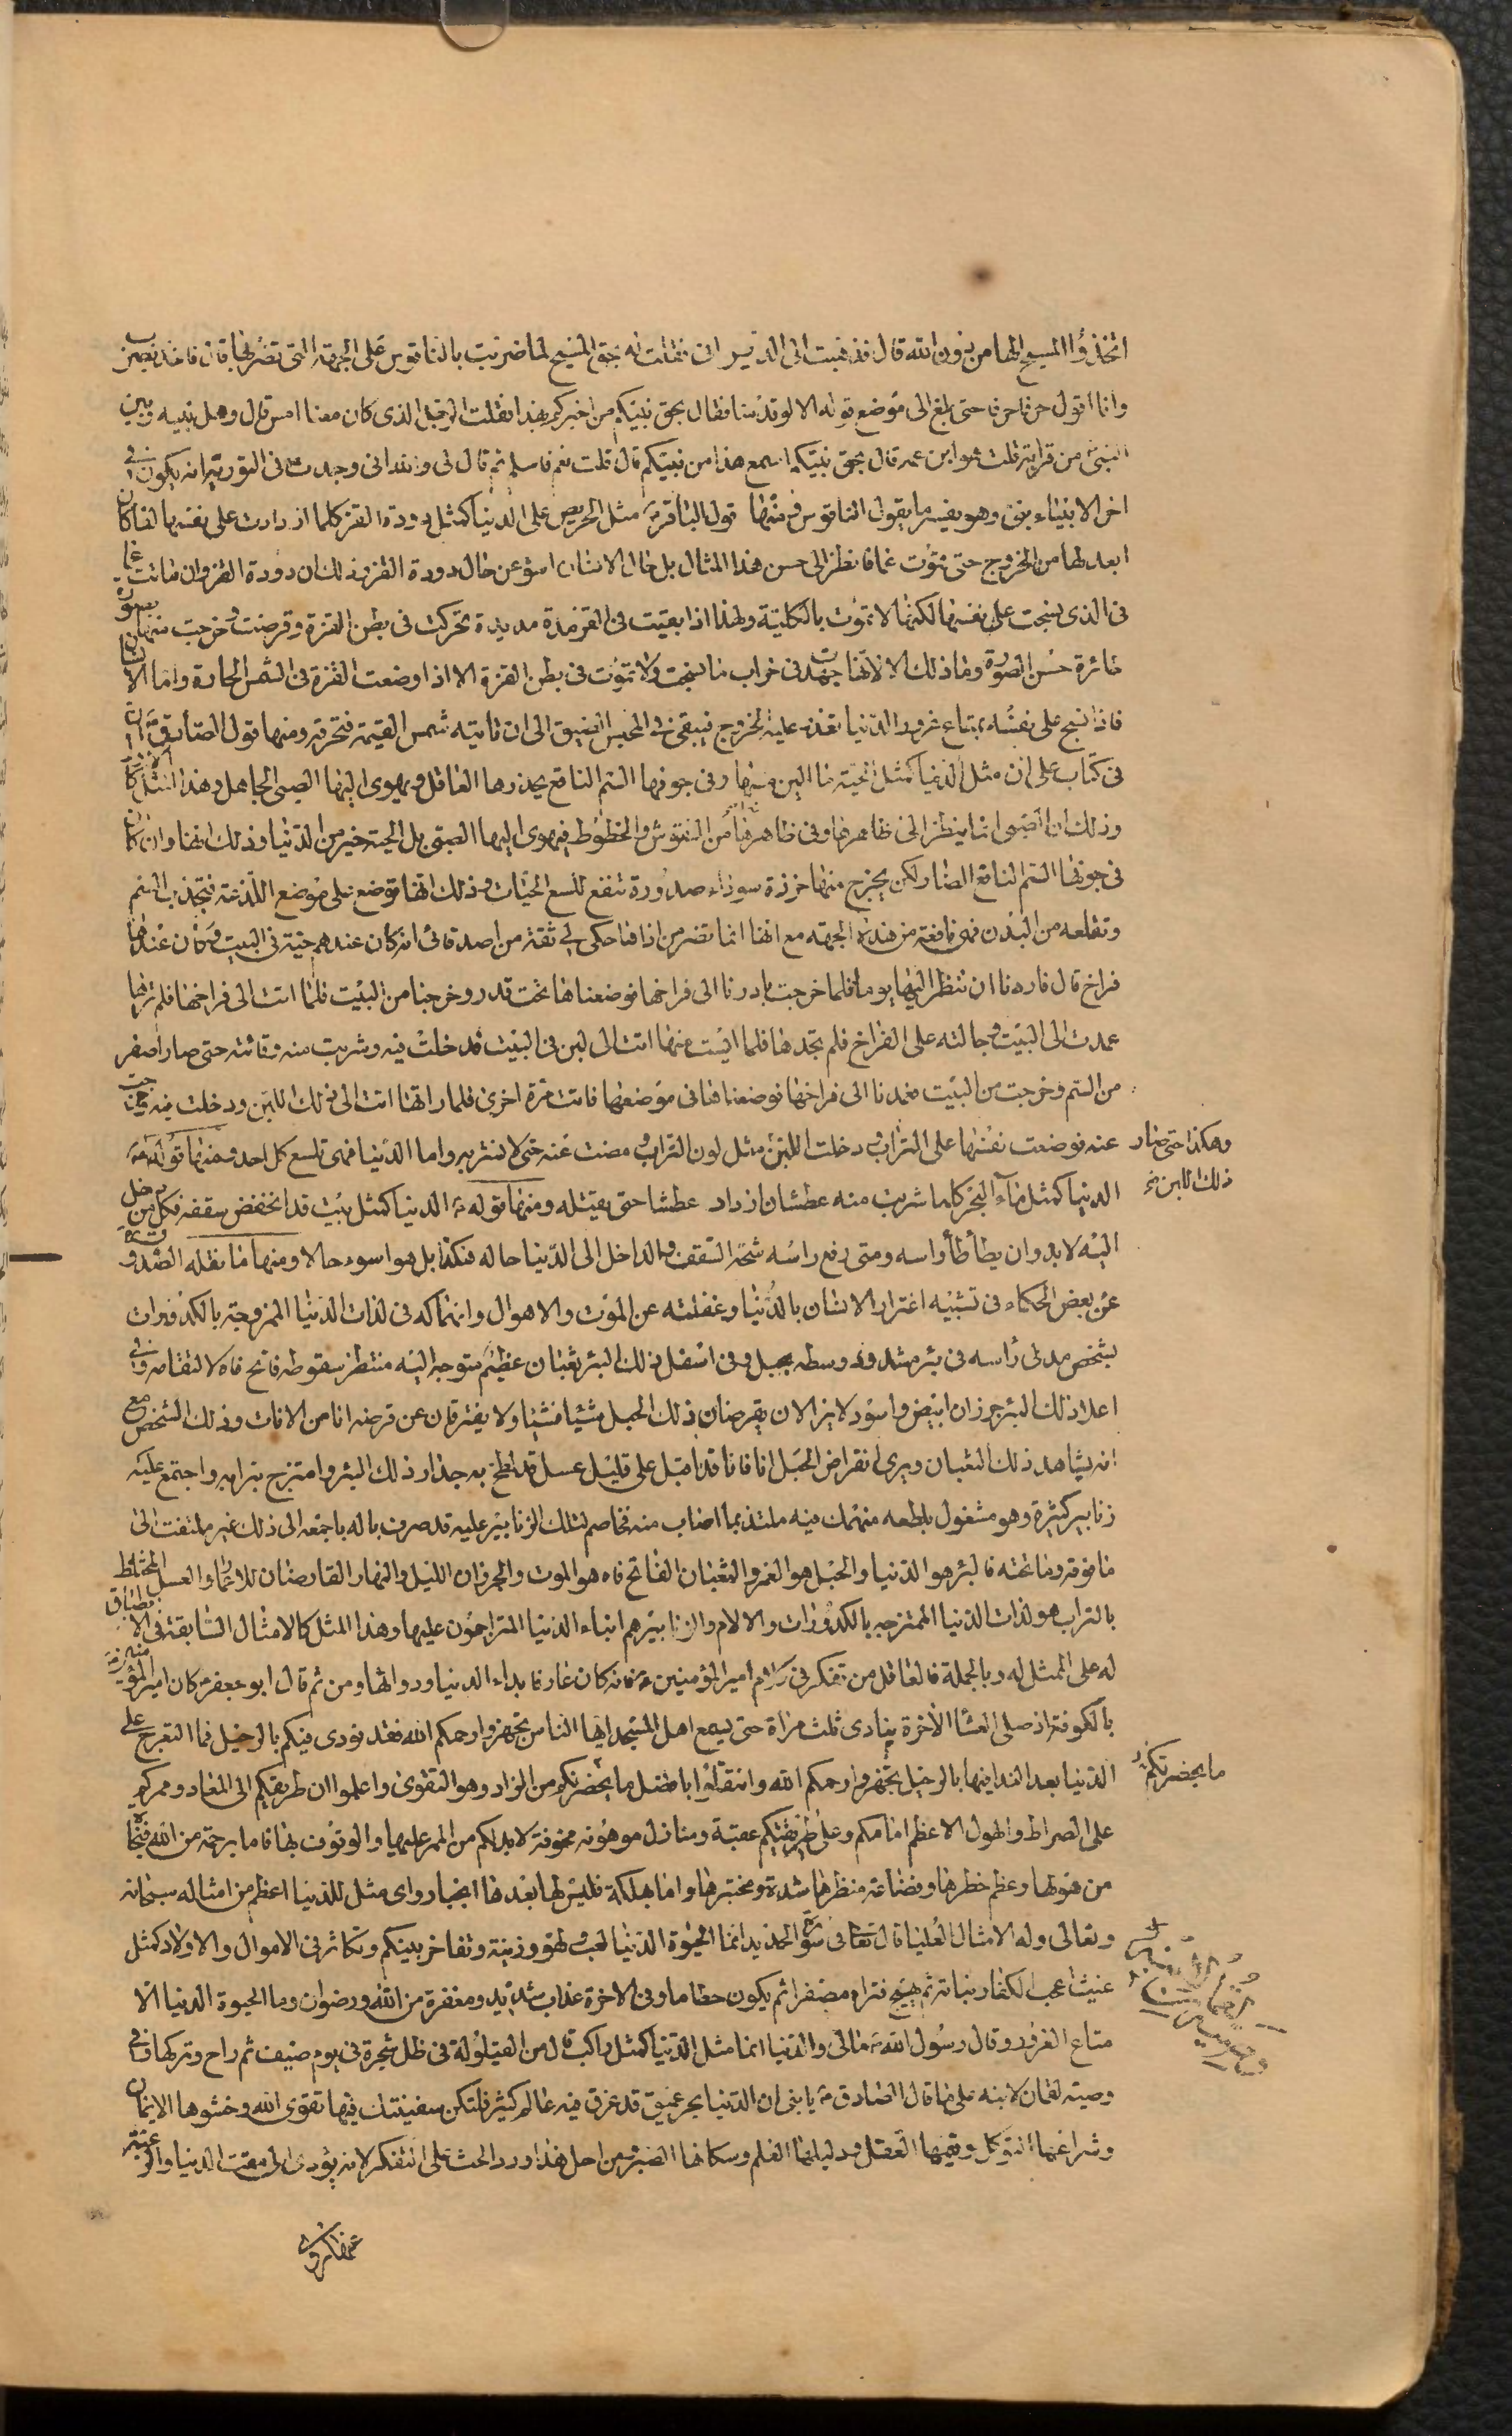 اتخذوا المسيح الها من دون الله قال فذهبت الى الديراني فقلت له بحق المسيح لما ضربت بالناقوس على الجهة التي تضربها قال فاخذ يضرب
وانا اقول حرفا حرفا حتى بلغ الى موضع قوله الا لو قدمتنا فقال بحق نبيكم من اخبركم بهذا فقلت الرجل الذي كان معنا امس قال وهل بينه وبين
النبي من قرابة قلت هو ابن عمه قال بحق نبيكم اسمع هذا من نبيكم قال قلت نعم فاسلم ثم قال لي والله اني وجدت في التورية انه يكون في
اخر الانبياء نبي وهو يفسر ما يقول الناقوس ومنها قول الباقر ع مثل الحريص على الدنيا كمثل دودة القز كلما ازدادت على نفسها لفا كان
ابعد لها من الخروج حتى تموت غما فانظر الى حسن هذا المثال بل حال الانسان اسوء عن حال دودة القز وذلك ان دودة القز وان ماتت غما
في الذي نسجت على نفسها لكنها لا تموت بالكلية ولهذا اذا بقيت في القز مدة مديدة تحركت في بطن القزة وقرضت وخرجت منها بصورة
طائرة حسن الصورة وما ذلك الا لانها جهدت في خراب ما نسجت ولا تموت في بطن القزة الا اذا وضعت القزة في الشمس الحارة واما الانسان
فاذا نسج على نفسه متاع غرور الدنيا تعذر عليه الخروج فيبقى في المحبس الضيق الى ان تاتيه شمس القيمة فتحرقه ومنها قول الصادق ع ان
في كتاب علي ان مثل الدنيا كمثل الحية ما الين مسها وفي جوفها السم الناقع يحذرها العاقل ويهوى اليها الصبي الجاهل وهذا المثل كالاول
وذلك ان الصبي انما ينظر الى ظاهرها وفي ظاهرها من النقوش والخطوط فيهوى اليها الصبي بل الحية خير من الدنيا وذلك انها وان كان
في جوفها السم الناقع الضار لكن يخرج منها خرزة سوداء مدورة تنفع للسع الحيات وذلك انها توضع على موضع اللذعة فتجذب السم
وتقلعه من البدن فهي نافعة من هذه الجهة مع انها انما تضر من اذاها حكى لي ثقة من اصدقائي انه كان عندهم حية في البيت وكان عندها
فراخ قال فاردنا ان ننظر اليها يوما فلما خرجت بادرنا الى فراخها فوضعناها تحت قدر وخرجنا من البيت فلما اتت الى فراخها فلم ترها
عمدت الى البيت وجالته على الفراخ فلم تجدها فلما ايست منها اتت الى لبن في البيت فدخلت فيه وشربت منه وتقائته حتى صار اصفر
من السم وخرجت من البيت فعمدنا الى فراخها فوضعناها في موضعها فاتت مرة اخرى فلما راتها اتت الى ذلك اللبن ودخلت فيه وخرجت
عنه فوضعت نفسها على التراب ودخلت اللبن مثل لون التراب ومضت عنه حتى لا نشربه واما الدنيا فهي تلسع كل احد ومنها قوله ع
وهكذا حتى صار
ذلك اللبن خ
الدنيا كمثل ماء البحر كلما شرب منه عطشان ازداد عطشا حتى يقتله ومنها قوله ع الدنيا كمثل بيت قد انخفض سقفه فكل من دخل
اليه لا بد وان يطأطأ راسه ومتى رفع راسه شجه السقف والداخل الى الدنيا حاله هكذا بل هو اسوء حالا ومنها ما نقله الصدوق ره
عن بعض الحكماء في تشبيه اغترار الانسان بالدنيا وغفلته عن الموت والاهوال وانهماكه في لذات الدنيا الممزوجة بالكدورات
بشخص مدلى راسه في بئر مشدود وسطه بحبل وفي اسفل ذلك البئر ثعبان عظيم متوجه اليه منتظر سقوطه فاتح فاه لالتقامه وفي
اعلا ذلك البئر جرذان ابيض واسود لا يزالان يقرضان ذلك الحبل شيئا فشيئا ولا يفتران عن قرضه انا من الانات وذلك الشخص مع
انه يشاهد ذلك الثعبان ويرى انقراض الحبل انا فانا قد اقبل على قليل عسل قد لطخ به جدار ذلك البئر وامتزج بترابه واجتمع عليه
زنابير كثيرة وهو مشغول بلطعه منهمك فيه ملتذ بما اصاب منه مخاصم لتلك الزنابير عليه قد صرف باله باجمعه الى ذلك غير ملتفت الى
ما فوقه وما تحته فالبئر هو الدنيا والحبل هو العمر والثعبان الفاتح فاه هو الموت والجرذان الليل والنهار القارضان للاعمار والعسل المختلط
بالتراب هو لذات الدنيا الممتزجة بالكدورات والالام والزنابير هم ابناء الدنيا المتزاحمون عليها وهذا المثل كالامثال السابقة في الانطباق
له على الممثل له وبالجملة فالعاقل من تفكر في كلام امير المؤمنين ع فانه كان عارفا بداء الدنيا ودوائها ومن ثم قال ابو جعفر ع كان امير المؤمنين ع
بالكوفة اذ صلى العشا الاخرة ينادي ثلث مراة حتى يسمع اهل المسجد ايها الناس تجهزوا رحمكم الله فقد نودي فيكم بالرحيل فما التعرج على
الدنيا بعد الندا فيها بالرحيل تجهزوا رحمكم الله وانتقلوا بافضل ما بحضرتكم من الزاد وهو التقوى واعلموا ان طريقكم الى المعاد وممركم
ما بحضرتكم
على الصراط والهول الاعظم امامكم وعلى طريقكم عقبة ومنازل مهولة مخوفة لا بد لكم من الممر عليها والوقوف بها فاما برحمة من الله فنجاة
من هولها وعظم خطرها وفضاعة منظرها شدة ومختبرها واما بهلكة فليس لها بعدها انجبار واي مثل للدنيا اعظم من امثاله سبحانه
وتعالى وله الامثال العليا قال تعالى في سورة الحديد انما الحيوة الدنيا لعب ولهو وزينة وتفاخر بينكم وتكاثر في الاموال والاولاد كمثل
غيث اعجب الكفار نباته ثم يهيج فتراه مصفرا ثم يكون حطاما وفي الاخرة عذاب شديد ومغفرة من الله ورضوان وما الحيوة الدنيا الا
متاع الغرور وقال رسول الله ص مالي والدنيا انما مثل الدنيا كمثل راكب قال من القيلولة في ظل شجرة في يوم صيف ثم راح وتركها وفي
وصية لقمان لابنه على ما قال الصادق ع يا بني ان الدنيا بحر عميق قد غرق فيه عالم كثير فلتكن سفينتك فيها تقوى الله وحشوها الايمان
وشراعها التوكل وقيمها العقل ودليلها العلم وسكانها الصبر ومن اجل هذا ورد الحث على التفكر لانه يؤدي الى مقت الدنيا والرغبة